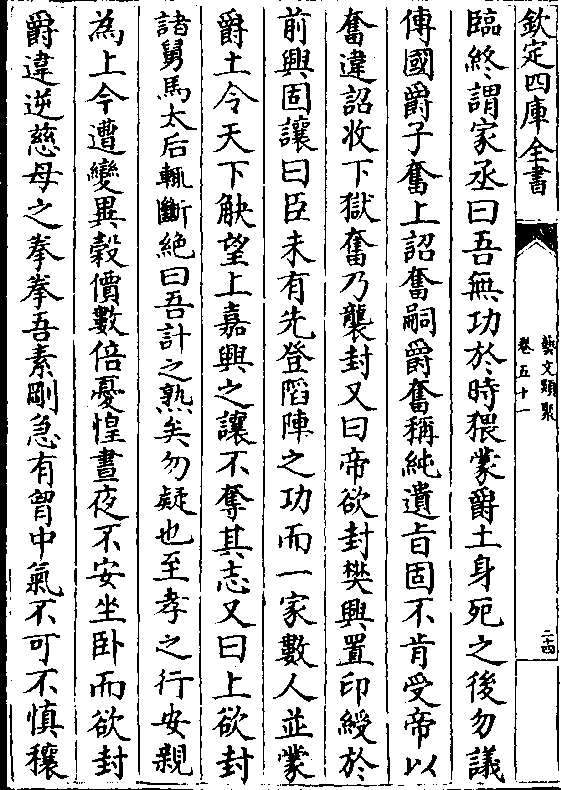 欽定四庫全書
藝文類聚
卷五十一
二十四
臨終謂家丞曰吾無功於時猥蒙爵土身死之後勿議
傳國爵子奮上詔奮嗣爵奮稱純遺旨固不肯受帝以
奮違詔收下獄奮乃襲封又曰帝欲封樊興置印綬於
前興固讓曰臣未有先登䧟陣之功而一家數人並蒙
爵土令天下觖望上嘉興之讓不奪其志又曰上欲封
諸舅馬太后輒斷絶曰吾計之熟矣勿疑也至孝之行安親
為上今遭變異榖價數倍憂惶晝夜不安坐卧而欲封
爵違逆慈母之拳拳吾素剛急有胷中氣不可不慎穰